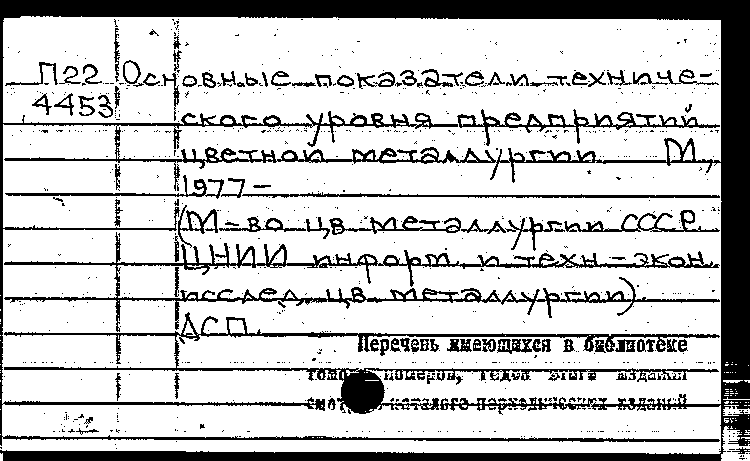 П22 Основные показатели техниче-
4453 ского уровня предприятий
цветной металлургии. М.,
1977 –
(М-во цв. металлургии СССР.
ЦНИИ информ. и техн.-экон.
исслед. цв. металлургии).
ДСП.
Перечень имеющихся в библиотеке
томов, номеров, годов этого издания
смотри в каталоге периодических изданий